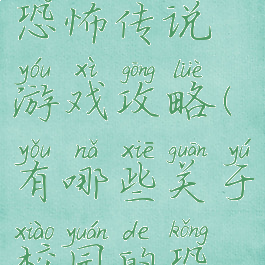 恐怖传说
yóu xì gōng lüè
游戏攻略(
yǒu nǎ xiē guān yú
有哪些关于
xiào yuán de kǒng
校园的恐